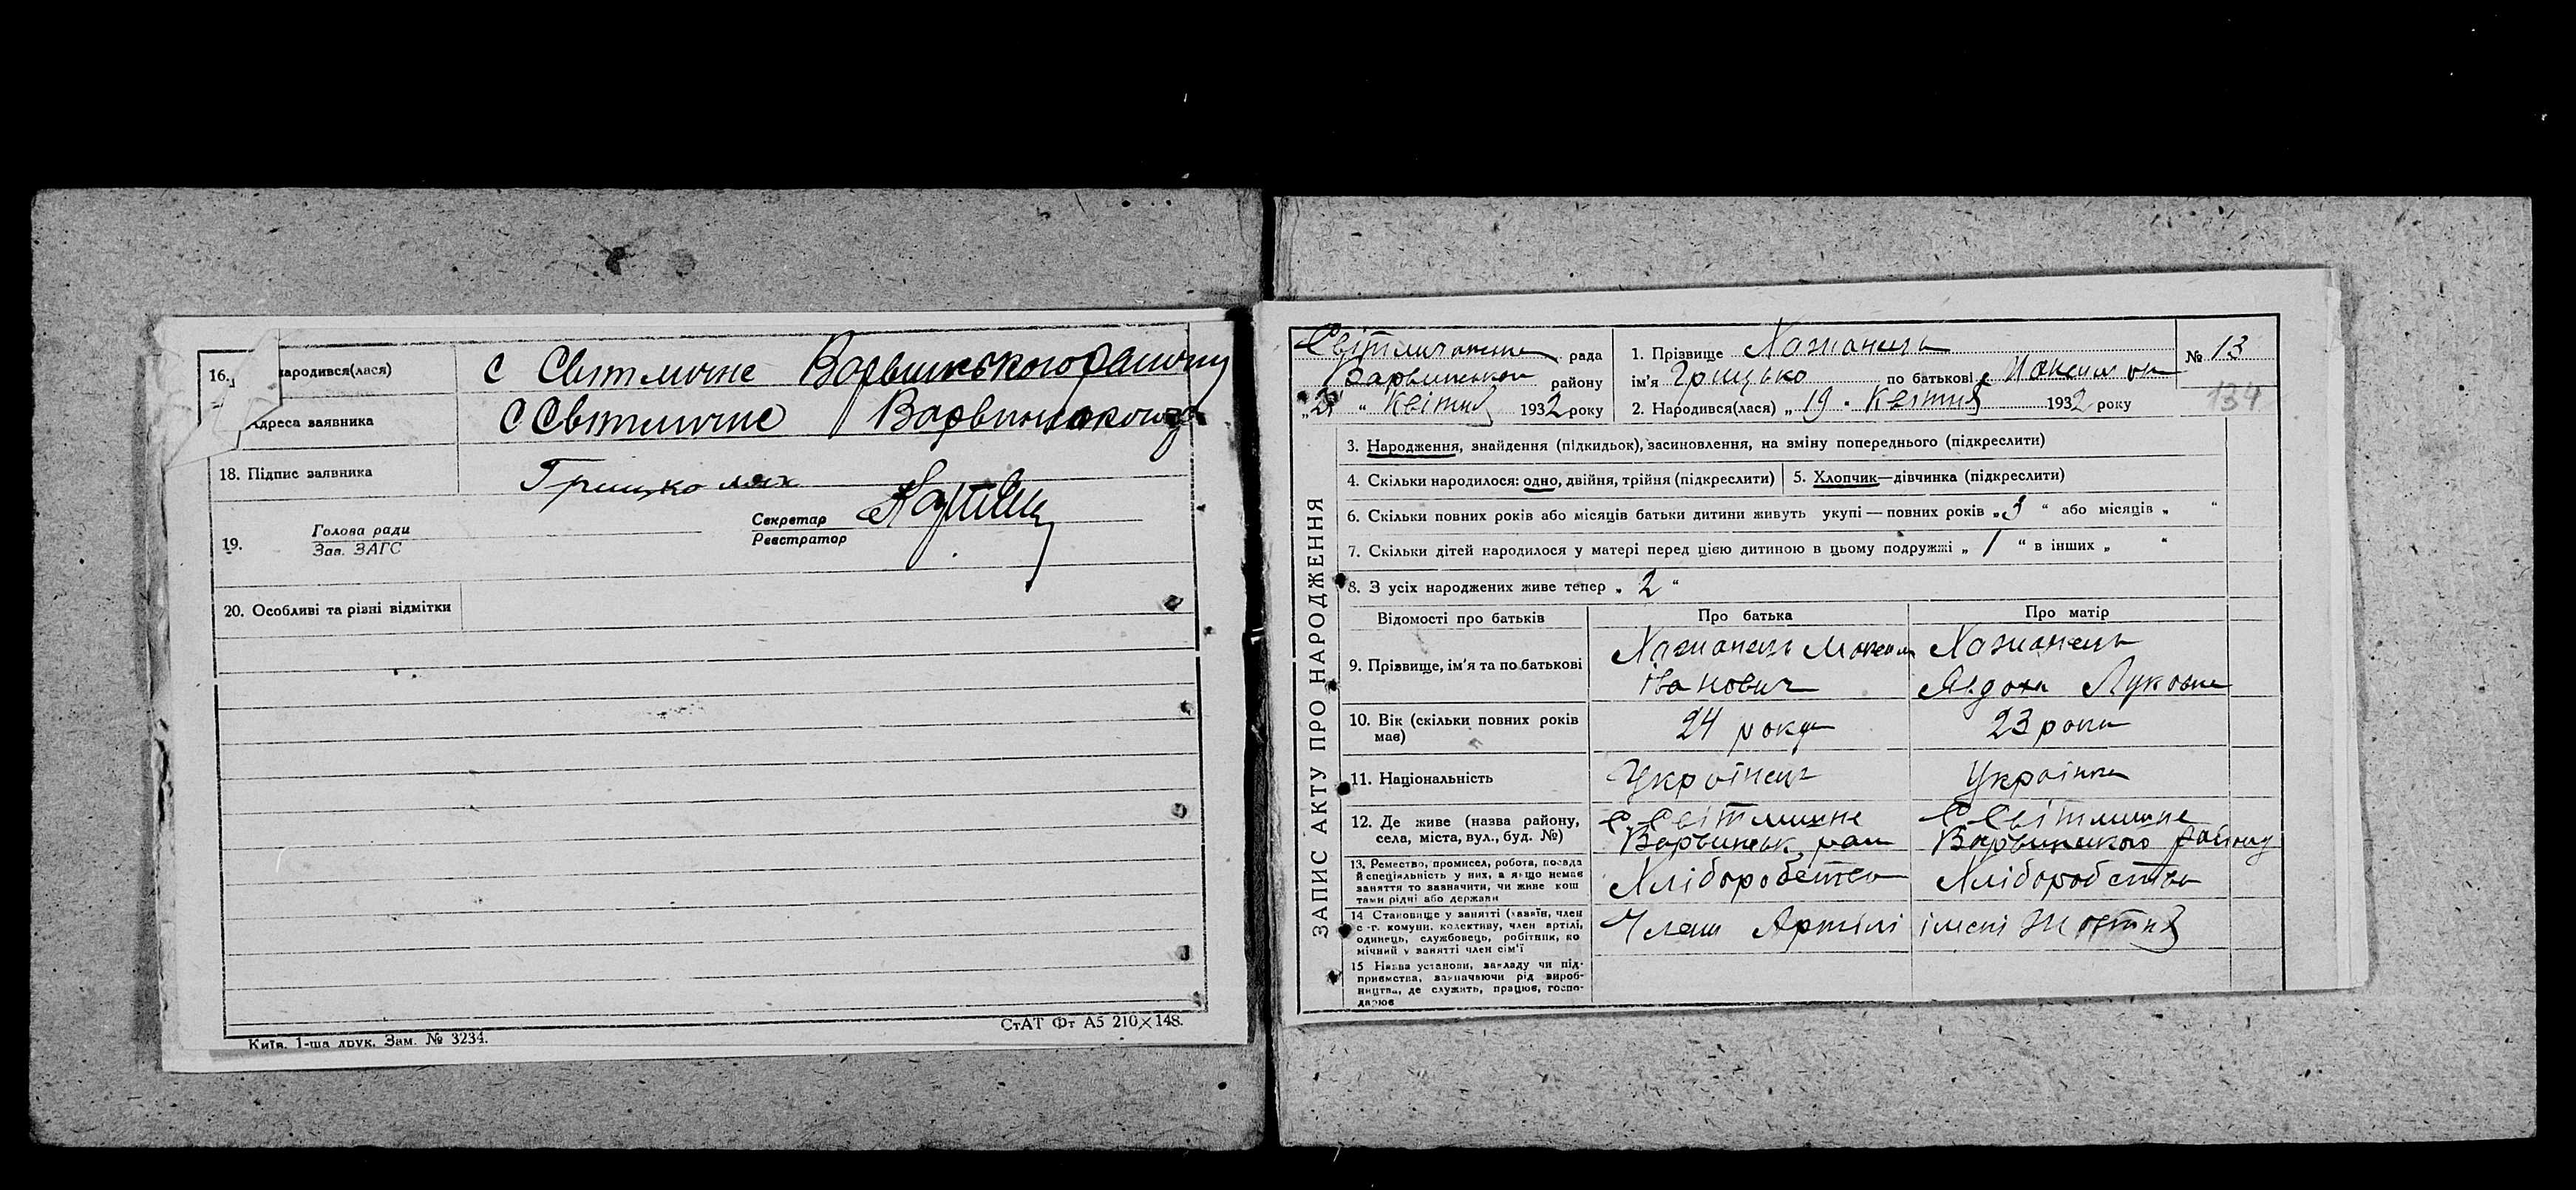 16. народився(лася) с Світличне Варвинського району
адреса заявника с Світличне Варвинського
18. Підпис заявника Грицко лях
19. Голова ради
Зав. ЗАГС
Секретар
Реєстратор
20. Особливі та різні відмітки
Київ. 1-ша друк. Зам. № 3234.
СтАТ Фт А5 210×148.
ЗАПИС АКТУ ПРО НАРОДЖЕННЯ
Світличанська рада
Варвинського району
" квітня 1932 року
1. Прізвище Хазманець
ім'я Грицько по батькові Максимов
2. Народився(лася) „19" Квітня 1932 року
№ 13
134
3. Народження, знайдення (підкидьок), засиновлення, на зміну попереднього (підкреслити)
4. Скільки народилося: одно, двійня, трійня (підкреслити)
5. Хлопчик—дівчинка (підкреслити)
6. Скільки повних років або місяців батьки дитини живуть укупі — повних років „3" або місяців „ "
7. Скільки дітей народилося у матері перед цією дитиною в цьому подружжі „1" в інших „ "
8. З усіх народжених живе тепер „2"
Відомості про батьків
Про батька
Про матір
9. Прізвище, ім'я та по батькові
Хазманець Максим
Іванович
Хазманець
Явдоха Луковна
10. Вік (скільки повних років має)
24 роки
23 роки
11. Національність
Українець
Українка
12. Де живе (назва району,
села, міста, вул., буд. №)
С. Світличне
Варвинськ рай
С Світличне
Варвинського району
13. Ремество, промисел, робота, посада
й спеціяльність у них, а якщо немає
заняття то зазначити, чи живе кош
тами рідні або держави
Хліборобство
Хліборобство
14 Становище у занятті (хазяїн, член
с-г. комуни, колективу, член артілі,
одинець, службовець, робітник, по
мічний у занятті член сім'ї
Член Артілі імені Жовтня
15 Назва установи, закладу чи під-
приємства, зазначаючи рід вироб-
ництва, де служить, працює, госпо-
дарює